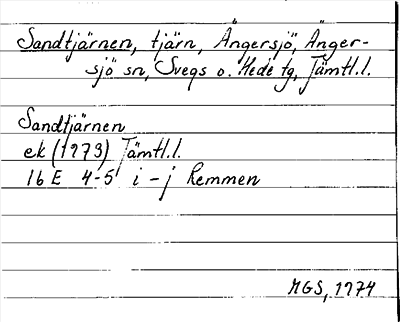 Sandtjärnen, tjärn, Ängersjö, Änger-
sjö sn, Svegs o. Hede tg, Jämtl.l.
Sandtjärnen
ek (1973) Jämtl.l.
16 E 4-5 i-j Remmen
MGS, 1974